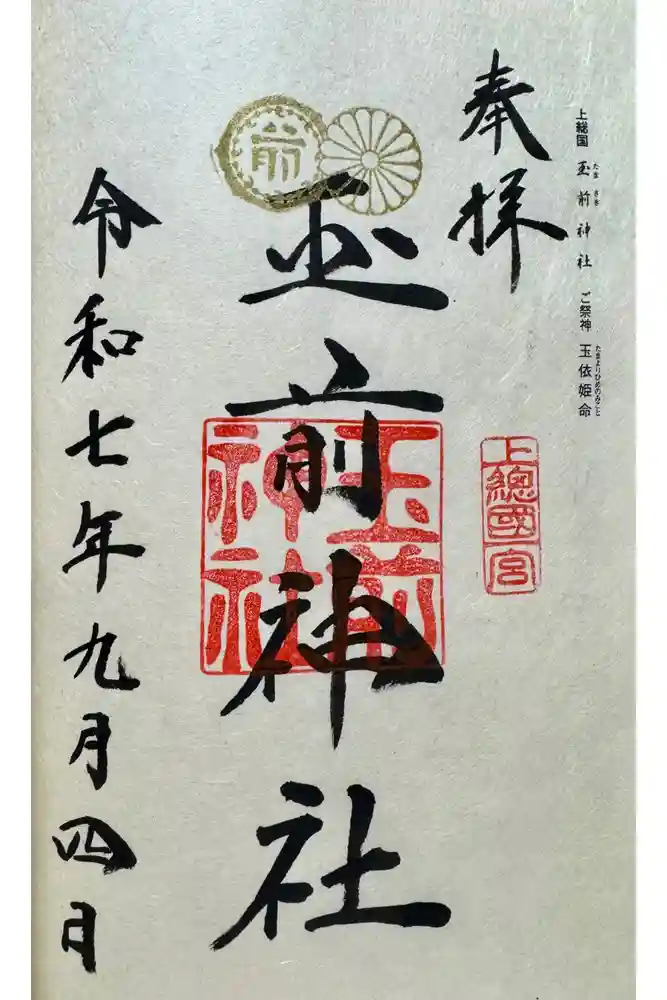 上総国 玉前神社 ご祭神 玉依姫命
たま さき
たまよりひめのみこと
奉拝
上總國一宮
前
玉前神社
玉前神社
令和七年九月四日